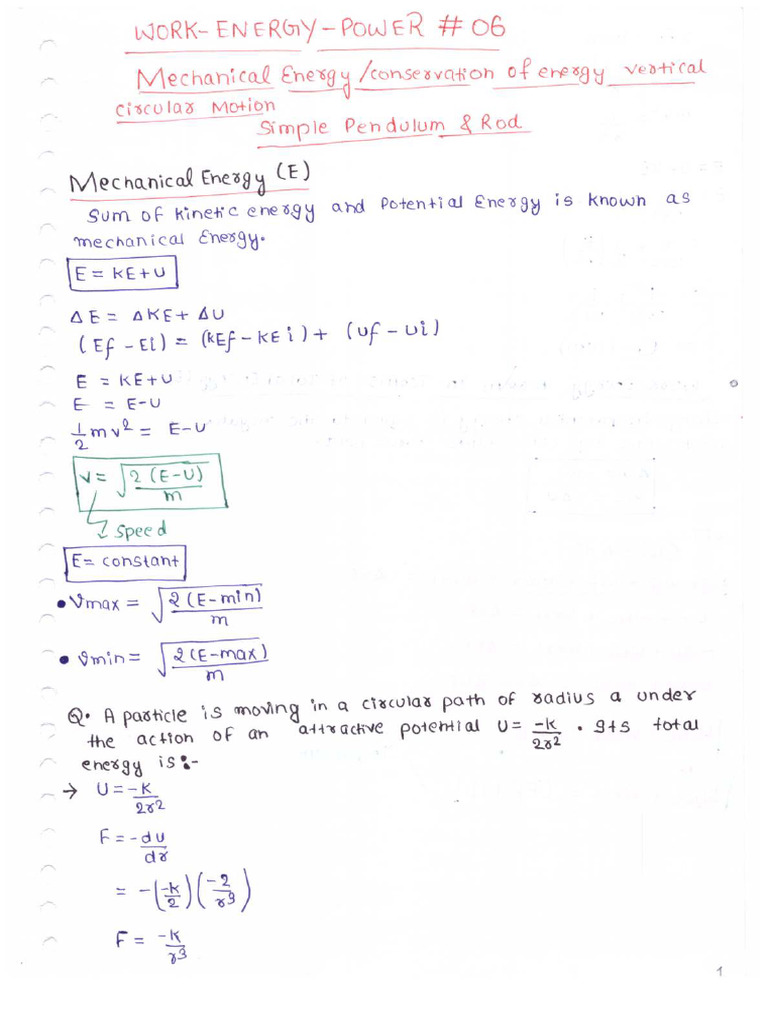 WORK-ENERGY-POWER # 06
Mechanical Energy/conservation of energy vertical
circular Motion
Simple Pendulum & Rod
Mechanical Energy (E)
Sum of kinetic energy and Potential Energy is known as
mechanical Energy.
E = KE+U
ΔE = ΔKE + ΔU
(Ef - Ei) = (KEf - KEi) + (Uf - Ui)
E = KE+U
E = E-U
1/2 mv² = E-U
v = √(2(E-U)/m)
speed
E = constant
• Vmax = √(2(E-min)/m)
• Vmin = √(2(E-max)/m)
Q. A particle is moving in a circular path of radius a under
the action of an attractive potential U = -K/2r² . Its total
energy is:-
→ U = -K/2r²
F = -dU/dr
= -(-K/2)(-2/r³)
F = -K/r³
1